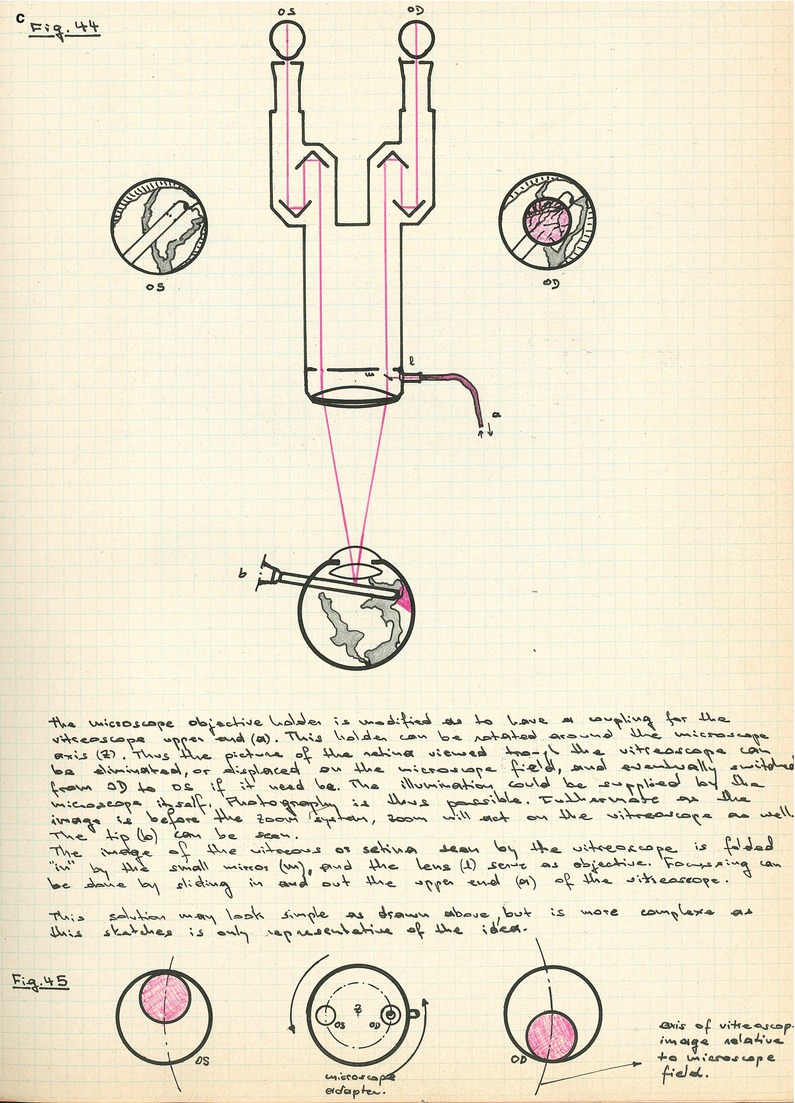 c
Fig. 44
OS
OD
OS
OD
m
l
a
b
the microscope objective holder is modified as to have a coupling for the
vitreoscope upper end (a). This holder can be rotated around the microscope
axis (Z). Thus the picture of the retina viewed trough the vitreoscope can
be eliminated, or displaced on the microscope field, and eventually switched
from OD to OS if it need be. The illumination could be supplied by the
microscope itself. Photography is thus possible. Futhermore as the
image is before the zoom system, zoom will act on the vitreoscope as well.
The tip (b) can be seen.
The image of the vitreous or retina seen by the vitreoscope is folded
"in" by the small mirror (m), and the lens (l) serve as objective. Focussing can
be done by sliding in and out the upper end (a) of the vitreoscope.
This solution may look simple as drawn above, but is more complexe as
this sketches is only representative of the idea.
Fig. 45
OS
Z
OS
OD
microscope
adapter.
OD
axis of vitreoscop
image relative
to microscope
field.